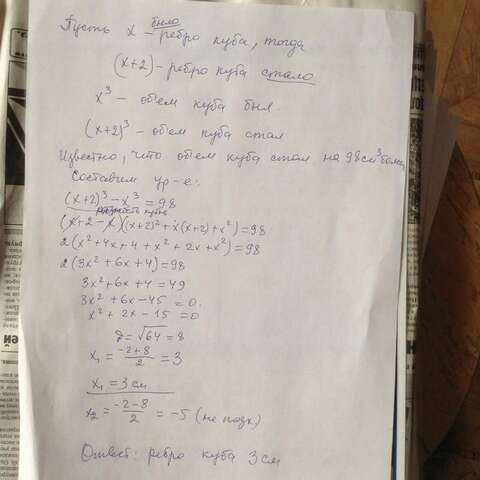 Пусть x - ребро куба, тогда
было
(x+2) - ребро куба стало
x³ - объем куба был.
(x+2)³ - объем куба стал
Известно, что объем куба стал на 98 см³ больше
Составим ур-е:
(x+2)³ - x³ = 98
разность кубов
(x+2-x)((x+2)²+x(x+2)+x²)=98
2(x²+4x+4+x²+2x+x²)=98
2(3x²+6x+4)=98
3x²+6x+4=49
3x²+6x-45=0.
x²+2x-15=0
D=√64=8
x₁=(-2+8)/2=3
x₁=3 см
x₂=(-2-8)/2=-5 (не подх.)
Ответ: ребро куба 3 см